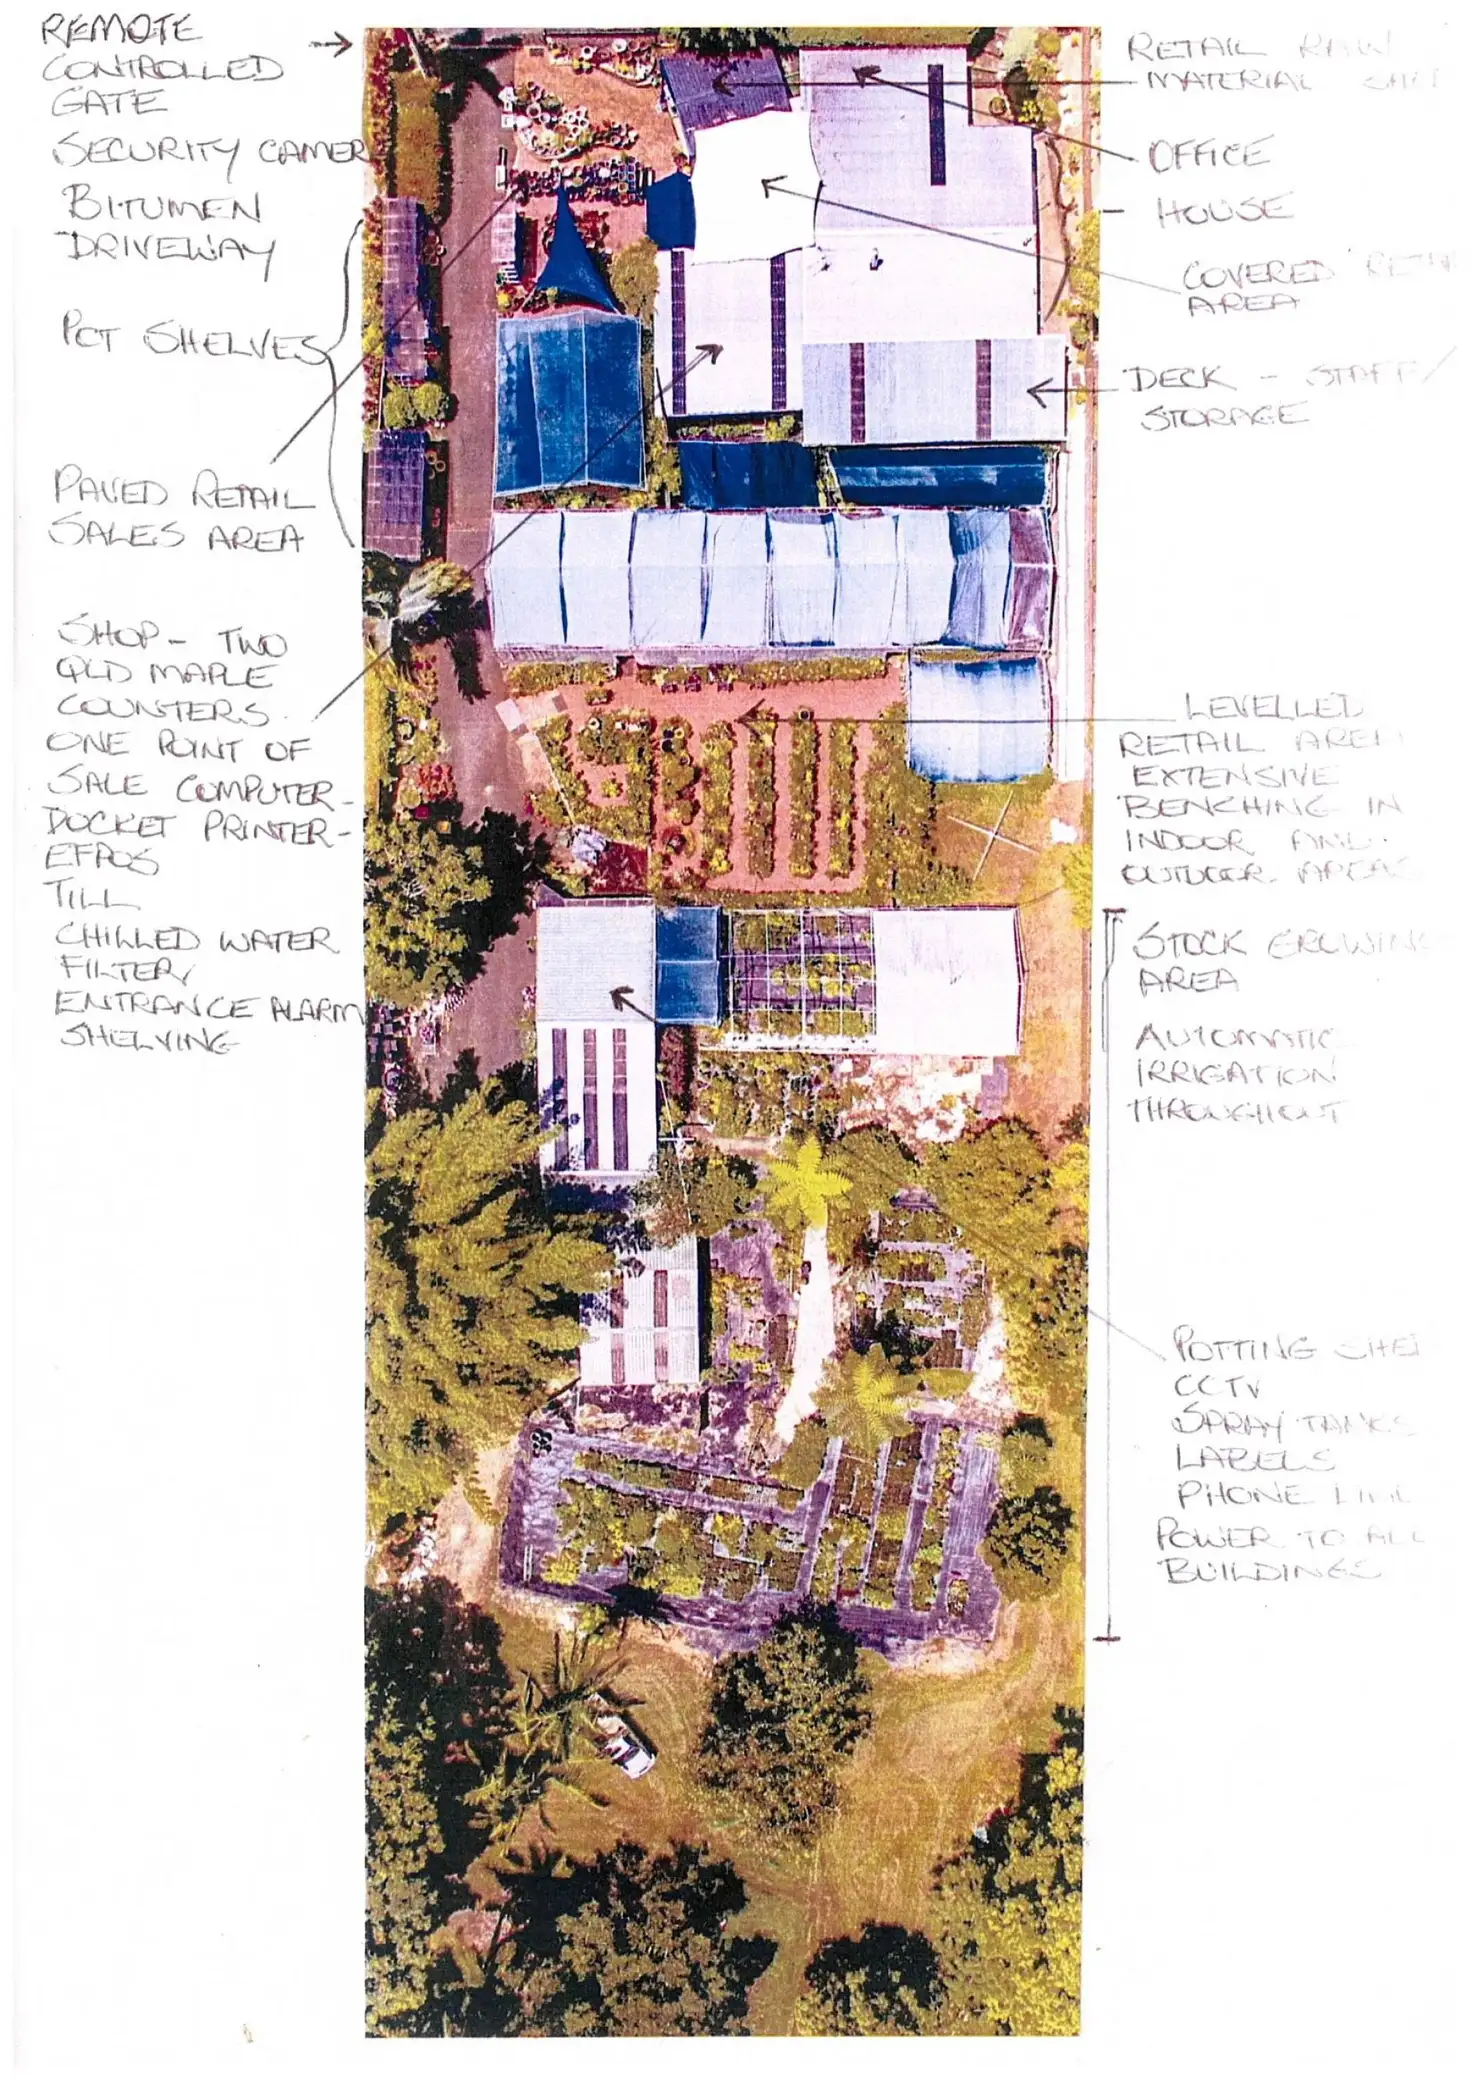 REMOTE
CONTROLLED
GATE
SECURITY CAMER
BITUMEN
DRIVEWAY
POT SHELVES
PAVED RETAIL
SALES AREA
SHOP - TWO
QLD MAPLE
COUNTERS.
ONE POINT OF
SALE COMPUTER -
DOCKET PRINTER -
EFPOS
TILL
CHILLED WATER
FILTER,
ENTRANCE ALARM
SHELVING
RETAIL RAW
MATERIAL SHE
OFFICE
HOUSE
COVERED RETA
AREA
DECK - STAFF /
STORAGE
LEVELLED
RETAIL AREA
EXTENSIVE
BENCHING IN
INDOOR AND
OUTDOOR AREAS
STOCK GROWING
AREA
AUTOMATIC
IRRIGATION
THROUGHOUT
POTTING SHE
CCTV
SPRAY TANKS
LABELS
PHONE LINE
POWER TO ALL
BUILDINGS